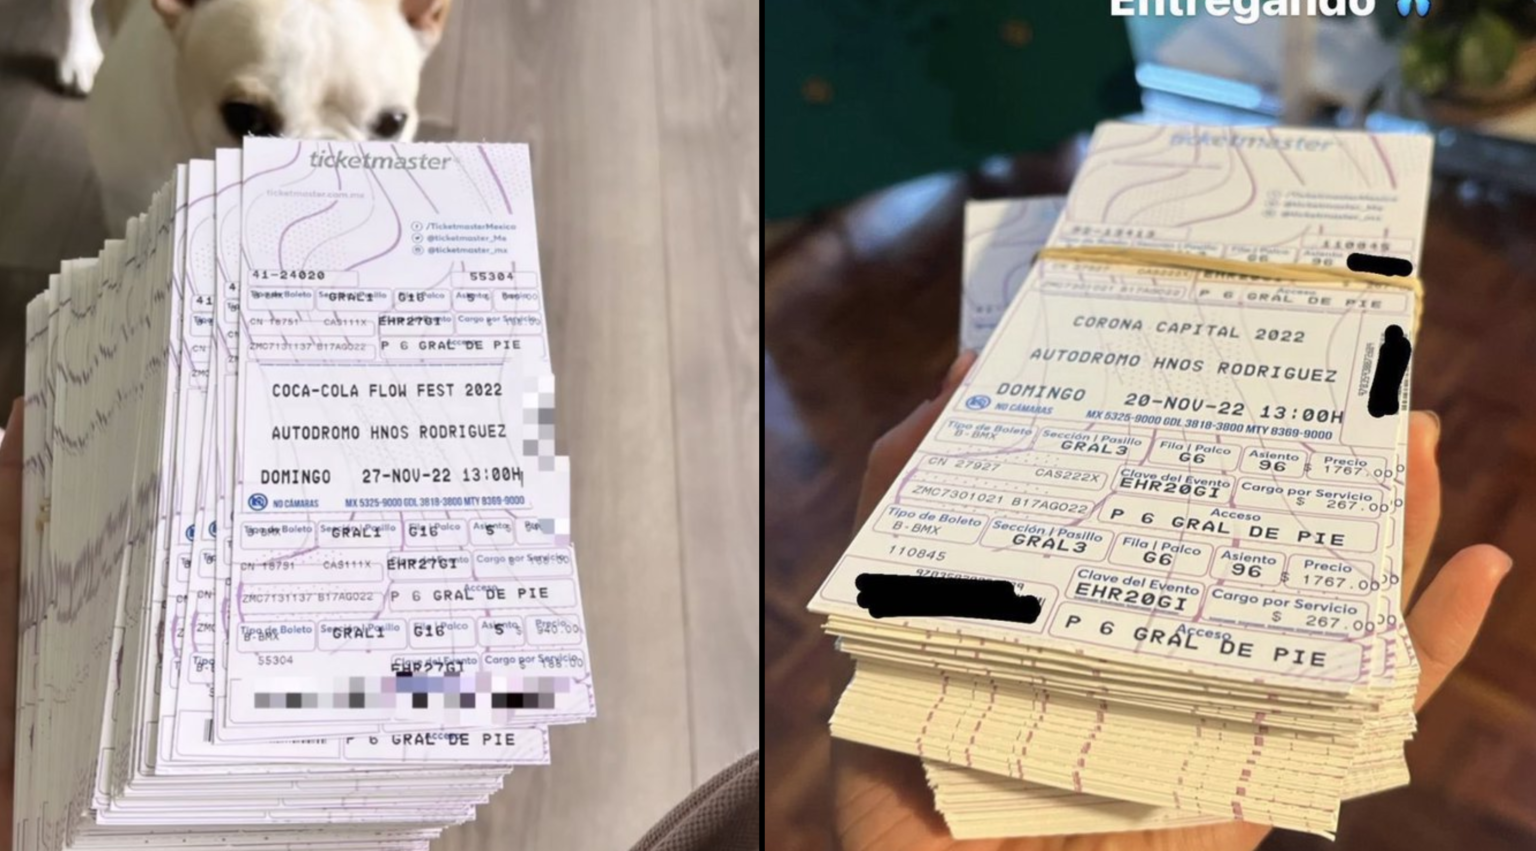 ticketmaster
ticketmaster.com.mx
/TicketmasterMexico
@ticketmaster_Me
@ticketmaster_mx
41-24020 55304
Tipo de Boleto Sección | Pasillo Fila | Palco
GRAL1 G16 5
EHR27GI Cargo por Servicio
CN 16751 CAS111X
ZMC7131137 B17AGO22 P 6 GRAL DE PIE
COCA-COLA FLOW FEST 2022
AUTODROMO HNOS RODRIGUEZ
DOMINGO 27-NOV-22 13:00H
NO CÁMARAS MX 5325-9000 GDL 3818-3800 MTY 8369-9000
Tipo de Boleto Sección | Pasillo Fila | Palco Asiento
B-BMX GRAL1 G16 5
CN 16751 CAS111X EHR27GI Cargo por Servicio
Acceso
ZMC7131137 B17AGO22 P 6 GRAL DE PIE
Tipo de Boleto Sección | Pasillo Fila | Palco Asiento Precio
B-BMX GRAL1 G16 5 $ 940.00
55304 Clave del Evento Cargo por Servicio
EHR27GI $ 168.00
P 6 GRAL DE PIE
Entregando
ticketmaster
/TicketmasterMexico
@ticketmaster_Me
@ticketmaster_mx
110845
G6 96
Acceso
P 6 GRAL DE PIE
CORONA CAPITAL 2022
AUTODROMO HNOS RODRIGUEZ
DOMINGO 20-NOV-22 13:00H
NO CÁMARAS MX 5325-9000 GDL 3818-3800 MTY 8369-9000
Tipo de Boleto Sección | Pasillo Fila | Palco Asiento Precio
B-BMX GRAL3 G6 96 $ 1767.00
CN 27927 CAS222X Clave del Evento Cargo por Servicio
EHR20GI $ 267.00
ZMC7301021 B17AGO22 Acceso
P 6 GRAL DE PIE
Tipo de Boleto Sección | Pasillo Fila | Palco Asiento Precio
B-BMX GRAL3 G6 96 $ 1767.00
110845 Clave del Evento Cargo por Servicio
EHR20GI $ 267.00
Acceso
P 6 GRAL DE PIE